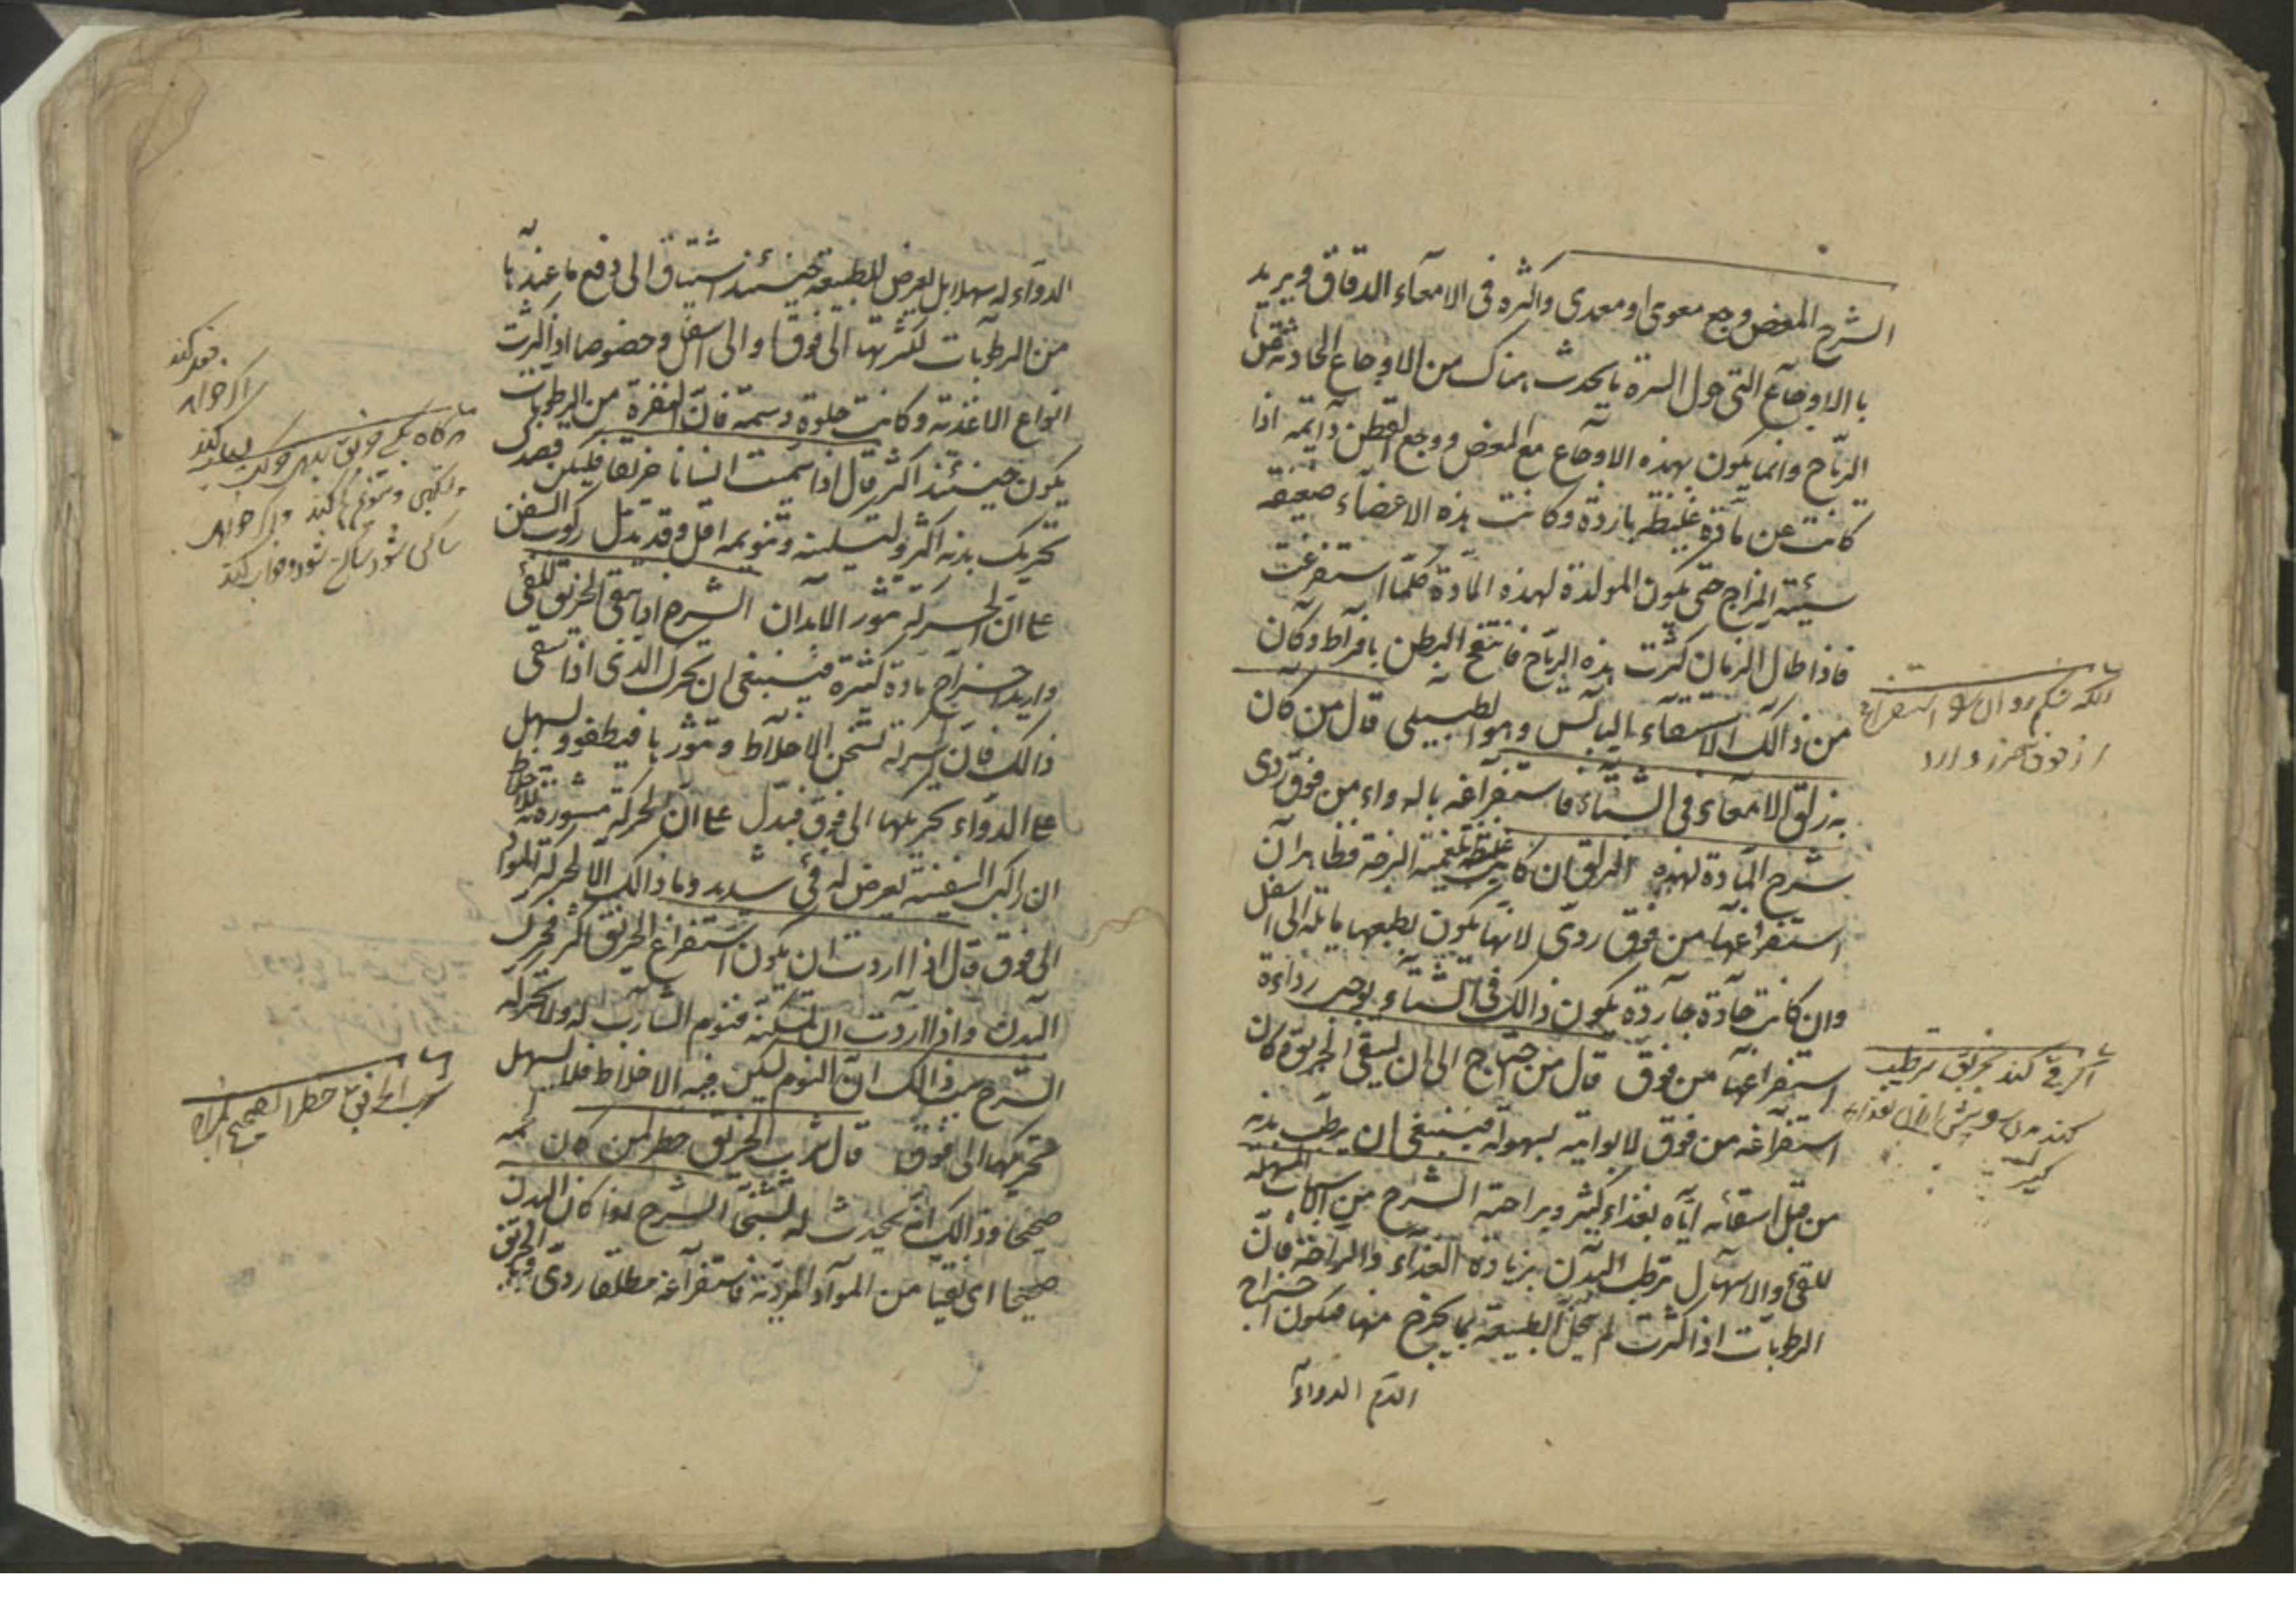 الشرح المغص وجع معوى او معدى واكثره فى الامعآء الدقاق ويريد
با الاوجاع التى حول السرة ما يحدث هناك من الاوجاع الحادثة عن
الرياح وانما يكون بهذه الاوجاع مع المغص ووجع القطن دآئمة اذا
كانت عن مادة غليظة باردة وكانت هذه الاعضآء ضعيفة
سيئة المزاج حتى يكون المولدة لهذه المادة كلما استفرغت
فاذا طال الزمان كثرت هذه الرياح فانتفخ البطن بافراط وكان
من ذالك الاستسقاء اليابس وهو الطبيلى قال من كان
به زلق الامعآء فى الشتاء فاستفراغه بالدواء من فوق ردى
شرح المادة لهذه الزلق ان كانت غليظة بلغمية لزجة فظاهر ان
استفراغها من فوق ردى لانها يكون بطبعها مايله الى اسفل
وان كانت حآدة حارة يكون ذالك فى الشتاء يوجب رداءة
استفراغها من فوق قال من احتاج الى ان يسقى الخربق وكان
استفراغه من فوق لا يواتيه بسهولة فينبغى ان يرطب بدنه
من قبل اسقائه اياه بغذاء كثير وبراحة الشرح من اسباب المسهله
للقئ والاسهال ترطب البدن بزيادة الغذآء والراحة فان
الرطوبات اذا كثرت لم يخل الطبيعة بما يخرج منها فيكون اخراج
الدم الدوآء
انكه شكم روان بو استفراغ
از فوق ضرر دارد
اكر قى كند بخربق ترطيب
كند بدن پيش ازان بغذاء
الدوآء له سهلا بل يعرض للطبيعة حينئذ اشتياق الى دفع ما عندها
من الرطوبات لكثرتها الى فوق والى اسفل وخصوصا اذا كثرت
انواع الاغذية وكانت حلوة دسمة فان المنفردة من الرطوبات
يكون حينئذ اكثر قال اذا سقيت انسانا خربقا فليكن قصدك
تحريك بدنه اكثر ولتسكينه وتنويمه اقل وقد يدل ركوب السفن
على ان الحركة تثور الابدان الشرح اذا سقى الخربق للقئ
واريد اخراج مادة كثيرة فينبغى ان يحرك الذى اذا سقى
ذالك فان الحركة تسخن الاخلاط وتثورها فيطفو ويسهل
على الدوآء تحريكها الى فوق فيدل على ان الحركة مثورة للاخلاط
ان راكب السفينة يعرض له قئ شديد وما ذالك الا لحركة المواد
الى فوق قال اذا اردت ان يكون استفراغ الخربق اكثر فحرك
البدن واذا اردت ان تسكنه فنوم الشارب له ولا تحركه
الشرح من ذالك ان النوم يسكن فيه الاخلاط فلا يسهل
تحريكها الى فوق قال شرب الخربق خطر لمن كان لحمه
صحيحا وذالك انه يحدث له تشنجا الشرح اذا كان البدن
صحيحا اى نقيا من المواد الردية فاستفراغه مطلقا ردى وبالخربق
هر كاه كسى خربق بدهى
ساكن شود ساكن شود وخواب كند